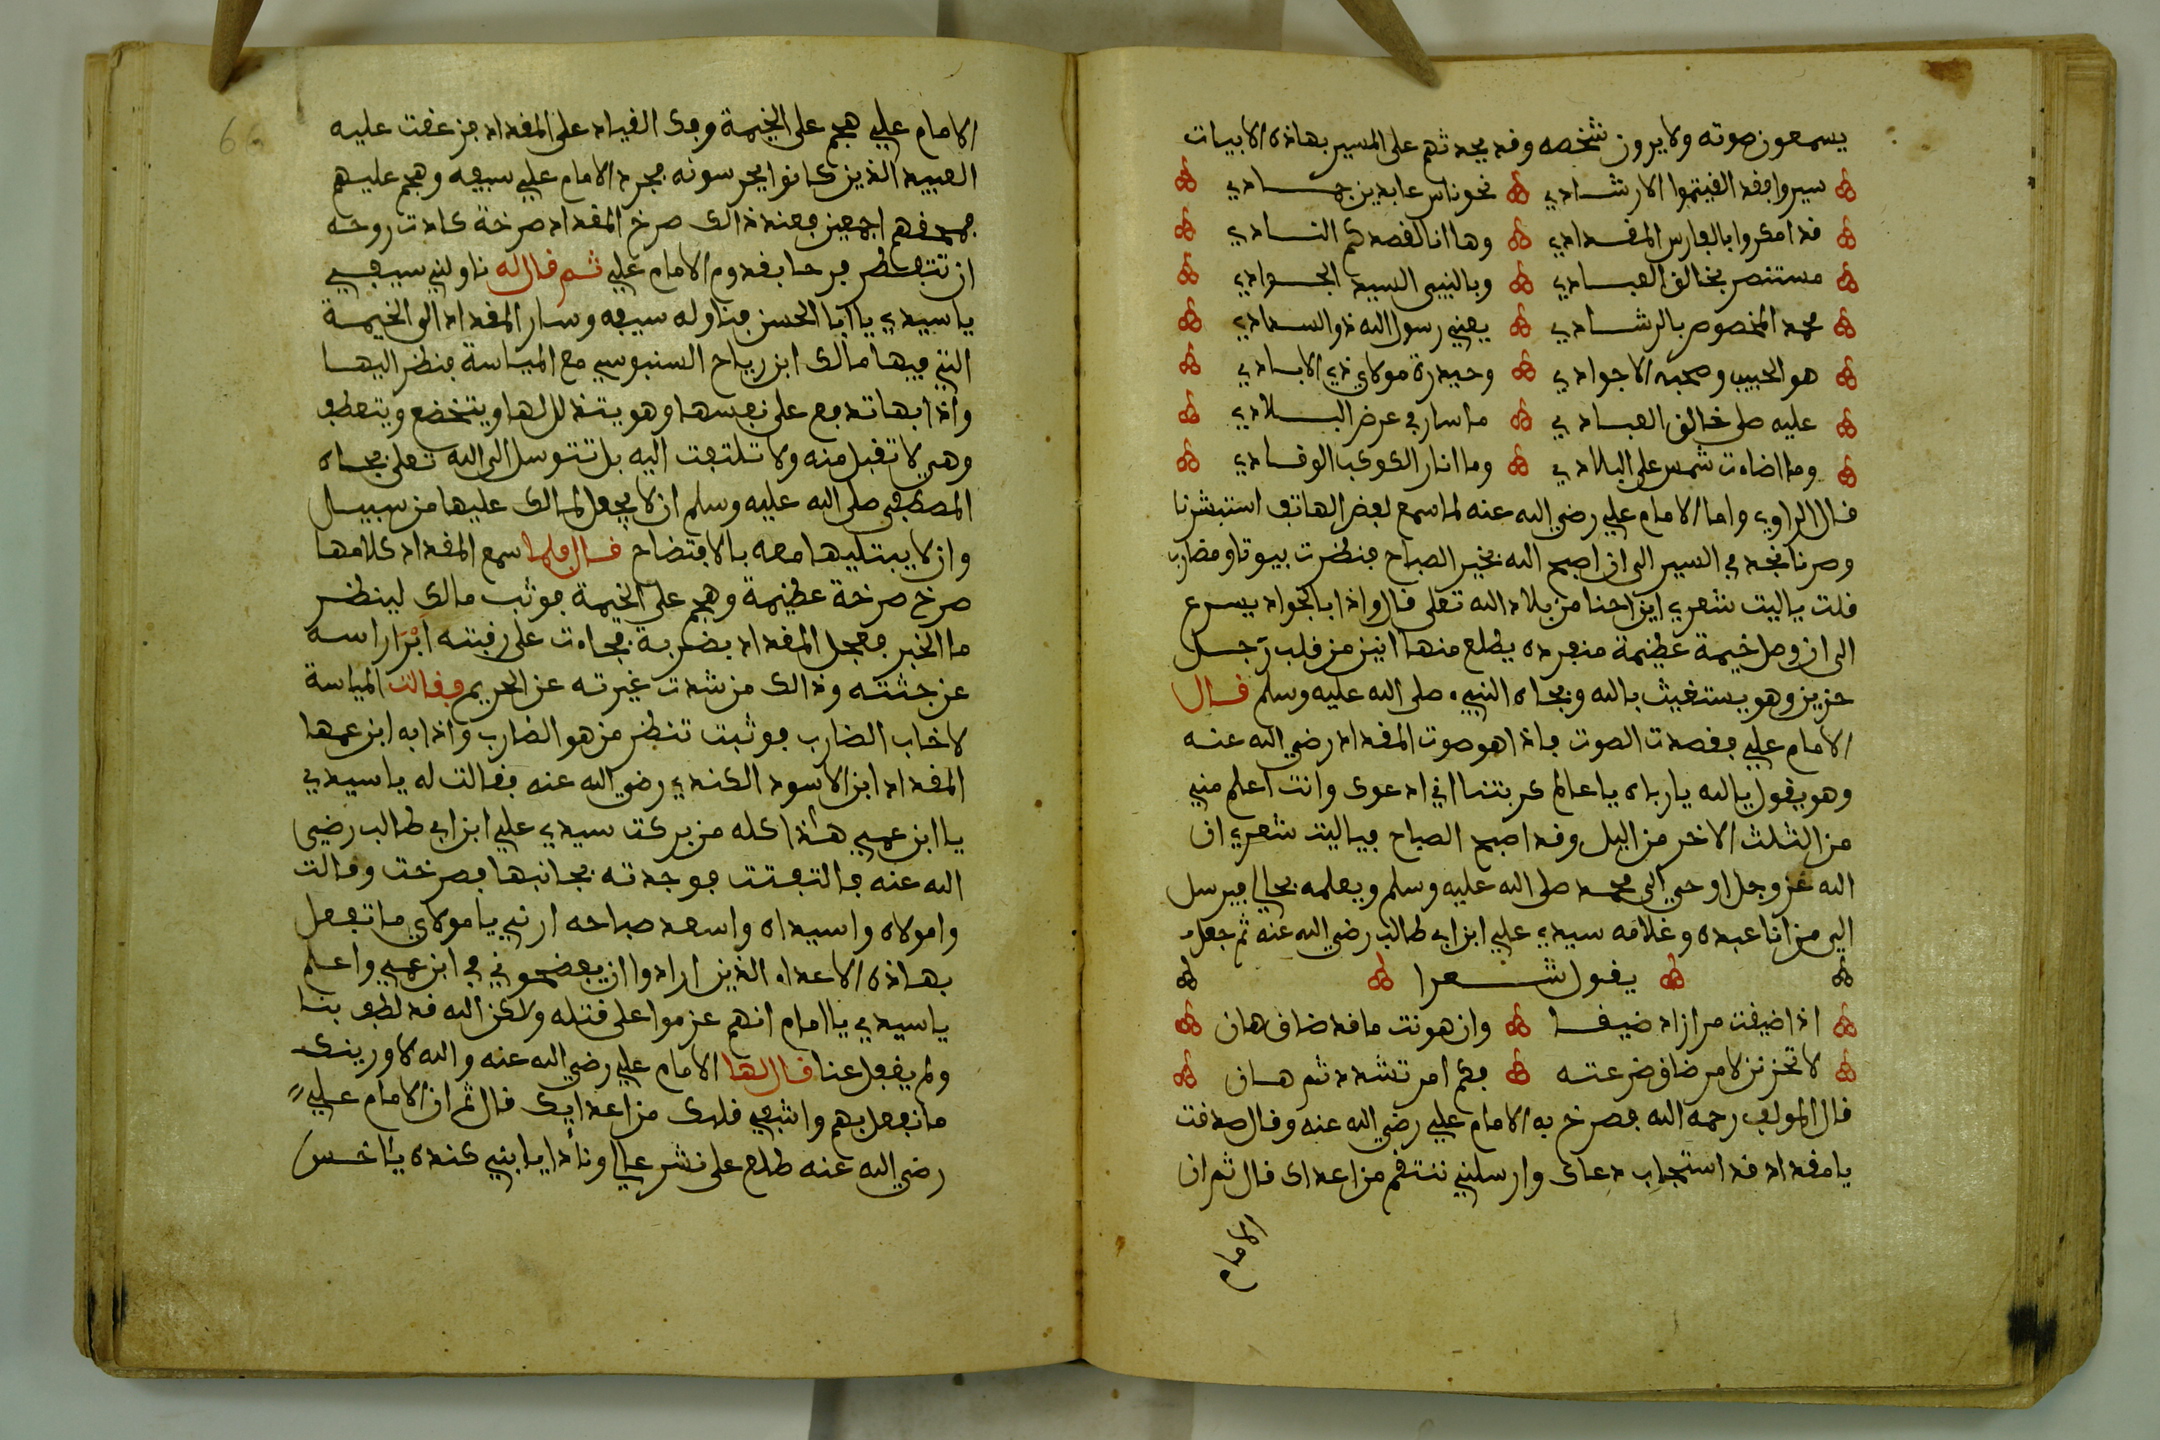 يسمعون صوته ولا يرون شخصه وقد يحدثهم على المسير بهاذه الابيات
سيروا فقد القيتموا الارشادي نحو ناس عابدين جهادي
قد امكروا بالفارس المقدادي وها انا لقصدكم النادي
مستنصر بخالق العبادي وبالنبي السيد الجوادي
محمد المخصوص بالرشادي يعني رسول الله ذو السدادي
هو الحبيب وصحبه الاجوادي وحيدرة مولاي ذي الايادي
عليه صلى خالق العبادي ما سار في عرض البلادي
وما اضاءت شمس على البلادي وما انار الكوكب الوقادي
قال الراوي واما الامام علي رضي الله عنه لما سمع لفض الهاتف استبشرنا
وصرنا نجد في السير الى ان اصبح الله بخير الصباح فنظرت بيوتا ومضارب
قلت ياليت شعري اين احنا من بلاد الله تعلى قال واذا بالجواد يسرع
الى ان وصل خيمة عظيمة منفرده يطلع منها انين من قلب رجل
حزين وهو يستغيث بالله وبجاه النبيء صلى الله عليه وسلم قال
الامام علي فقصدت الصوت فاذا هو صوت المقداد رضي الله عنه
وهو يقول يا الله يا رباه يا عالم كربتنا اني ادعوك وانت اعلم مني
من الثلث الاخر من اليل وقد اصبح الصباح فياليت شعري ان
الله عز وجل اوحي الى محمد صلى الله عليه وسلم ويعلمه بحالي فيرسل
الي من انا عبده وغلامه سيدي علي ابن ابي طالب رضي الله عنه ثم جعل
يقول شعرا
اذا ضيقت مرا زاد ضيفا وان هونت ما قد ضاق هان
لا تحزنن لامر ضاق ضرعته فكم امر تشدد ثم هان
قال المولف رحمه الله فصرخ به الامام علي رضي الله عنه وقال صدقت
يا مقداد قد استجاب دعاك وارسلني ننتقم من اعداك قال ثم ان
الامام
الامام علي هجم على الخيمة وفك القياد على المقداد من عفت عليه
العبيد الذين كانوا يحرسونه فجرد الامام علي سيفه وهجم عليهم
فمحقهم اجمعين فعند ذالك صرخ المقداد صرخة كادت روحه
ان تنفطر فرحا بقدوم الامام علي ثم قال له ناولني سيفي
يا سيدي يا ابا الحسن فناوله سيفه وسار المقداد الى الخيمة
التي فيها مالك ابن رياح السنبوسي مع المياسة فنظر اليها
واذا بها تدفع على نفسها وهو يتذلل لها ويتخضع ويتعطف
وهي لا تقبل منه ولا تلتفت اليه بل تتوسل الى الله تعلى بجاه
المصطفى صلى الله عليه وسلم ان لا يجعل لمالك عليها من سبيل
وان لا يبتليها معه بالافتضاح قال فلما سمع المقداد كلامها
صرخ صرخة عظيمة وهجم على الخيمة فوثب مالك لينظر
ما الخبر فعجل المقداد بضربة فجاءت على رقبته ابرا راسه
عن جثته وذالك من شدت غيرته عن الحريم فقالت المياسة
لا خاب الضارب فوثبت تنظر من هو الضارب واذا به ابن عمها
المقداد ابن الاسود الكندي رضي الله عنه فقالت له يا سيدي
يا ابن عمي هذا كله من بركت سيدي علي ابن ابي طالب رضي
الله عنه فالتفتت فوجدته بجانبها فصرخت وقالت
وامولاه واسيداه واسعد صباحه ارني يا مولاي ما تفعل
بهاذه الاعداء الذين ارادوا ان يفضحوني في ابن عمي واعلم
يا سيدي يا امام انهم عزموا على قتله ولاكن الله قد لطف بنا
ولم يغفل عنا فقال لها الامام علي رضي الله عنه والله لاورينك
ما نفعل بهم واشفي قلبك من اعدايك قال ثم ان الامام علي
رضي الله عنه طلع على نشز عالي ونادا يا بني كنده يا اخس